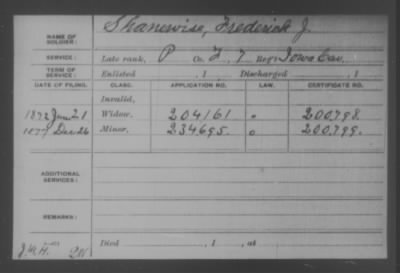 NAME OF SOLDIER: Shanewise, Frederick J.
SERVICE: Late rank, P Co. F, 7 Reg't Iowa Cav.
TERM OF SERVICE: Enlisted , 1 Discharged , 1
DATE OF FILING. CLASS. APPLICATION NO. LAW. CERTIFICATE NO.
Invalid,
1872 Jun 21 Widow, 204161 " 200,798.
1877 Dec 26 Minor, 234695. o 200,799.
ADDITIONAL SERVICES:
REMARKS:
Died , 1 , at